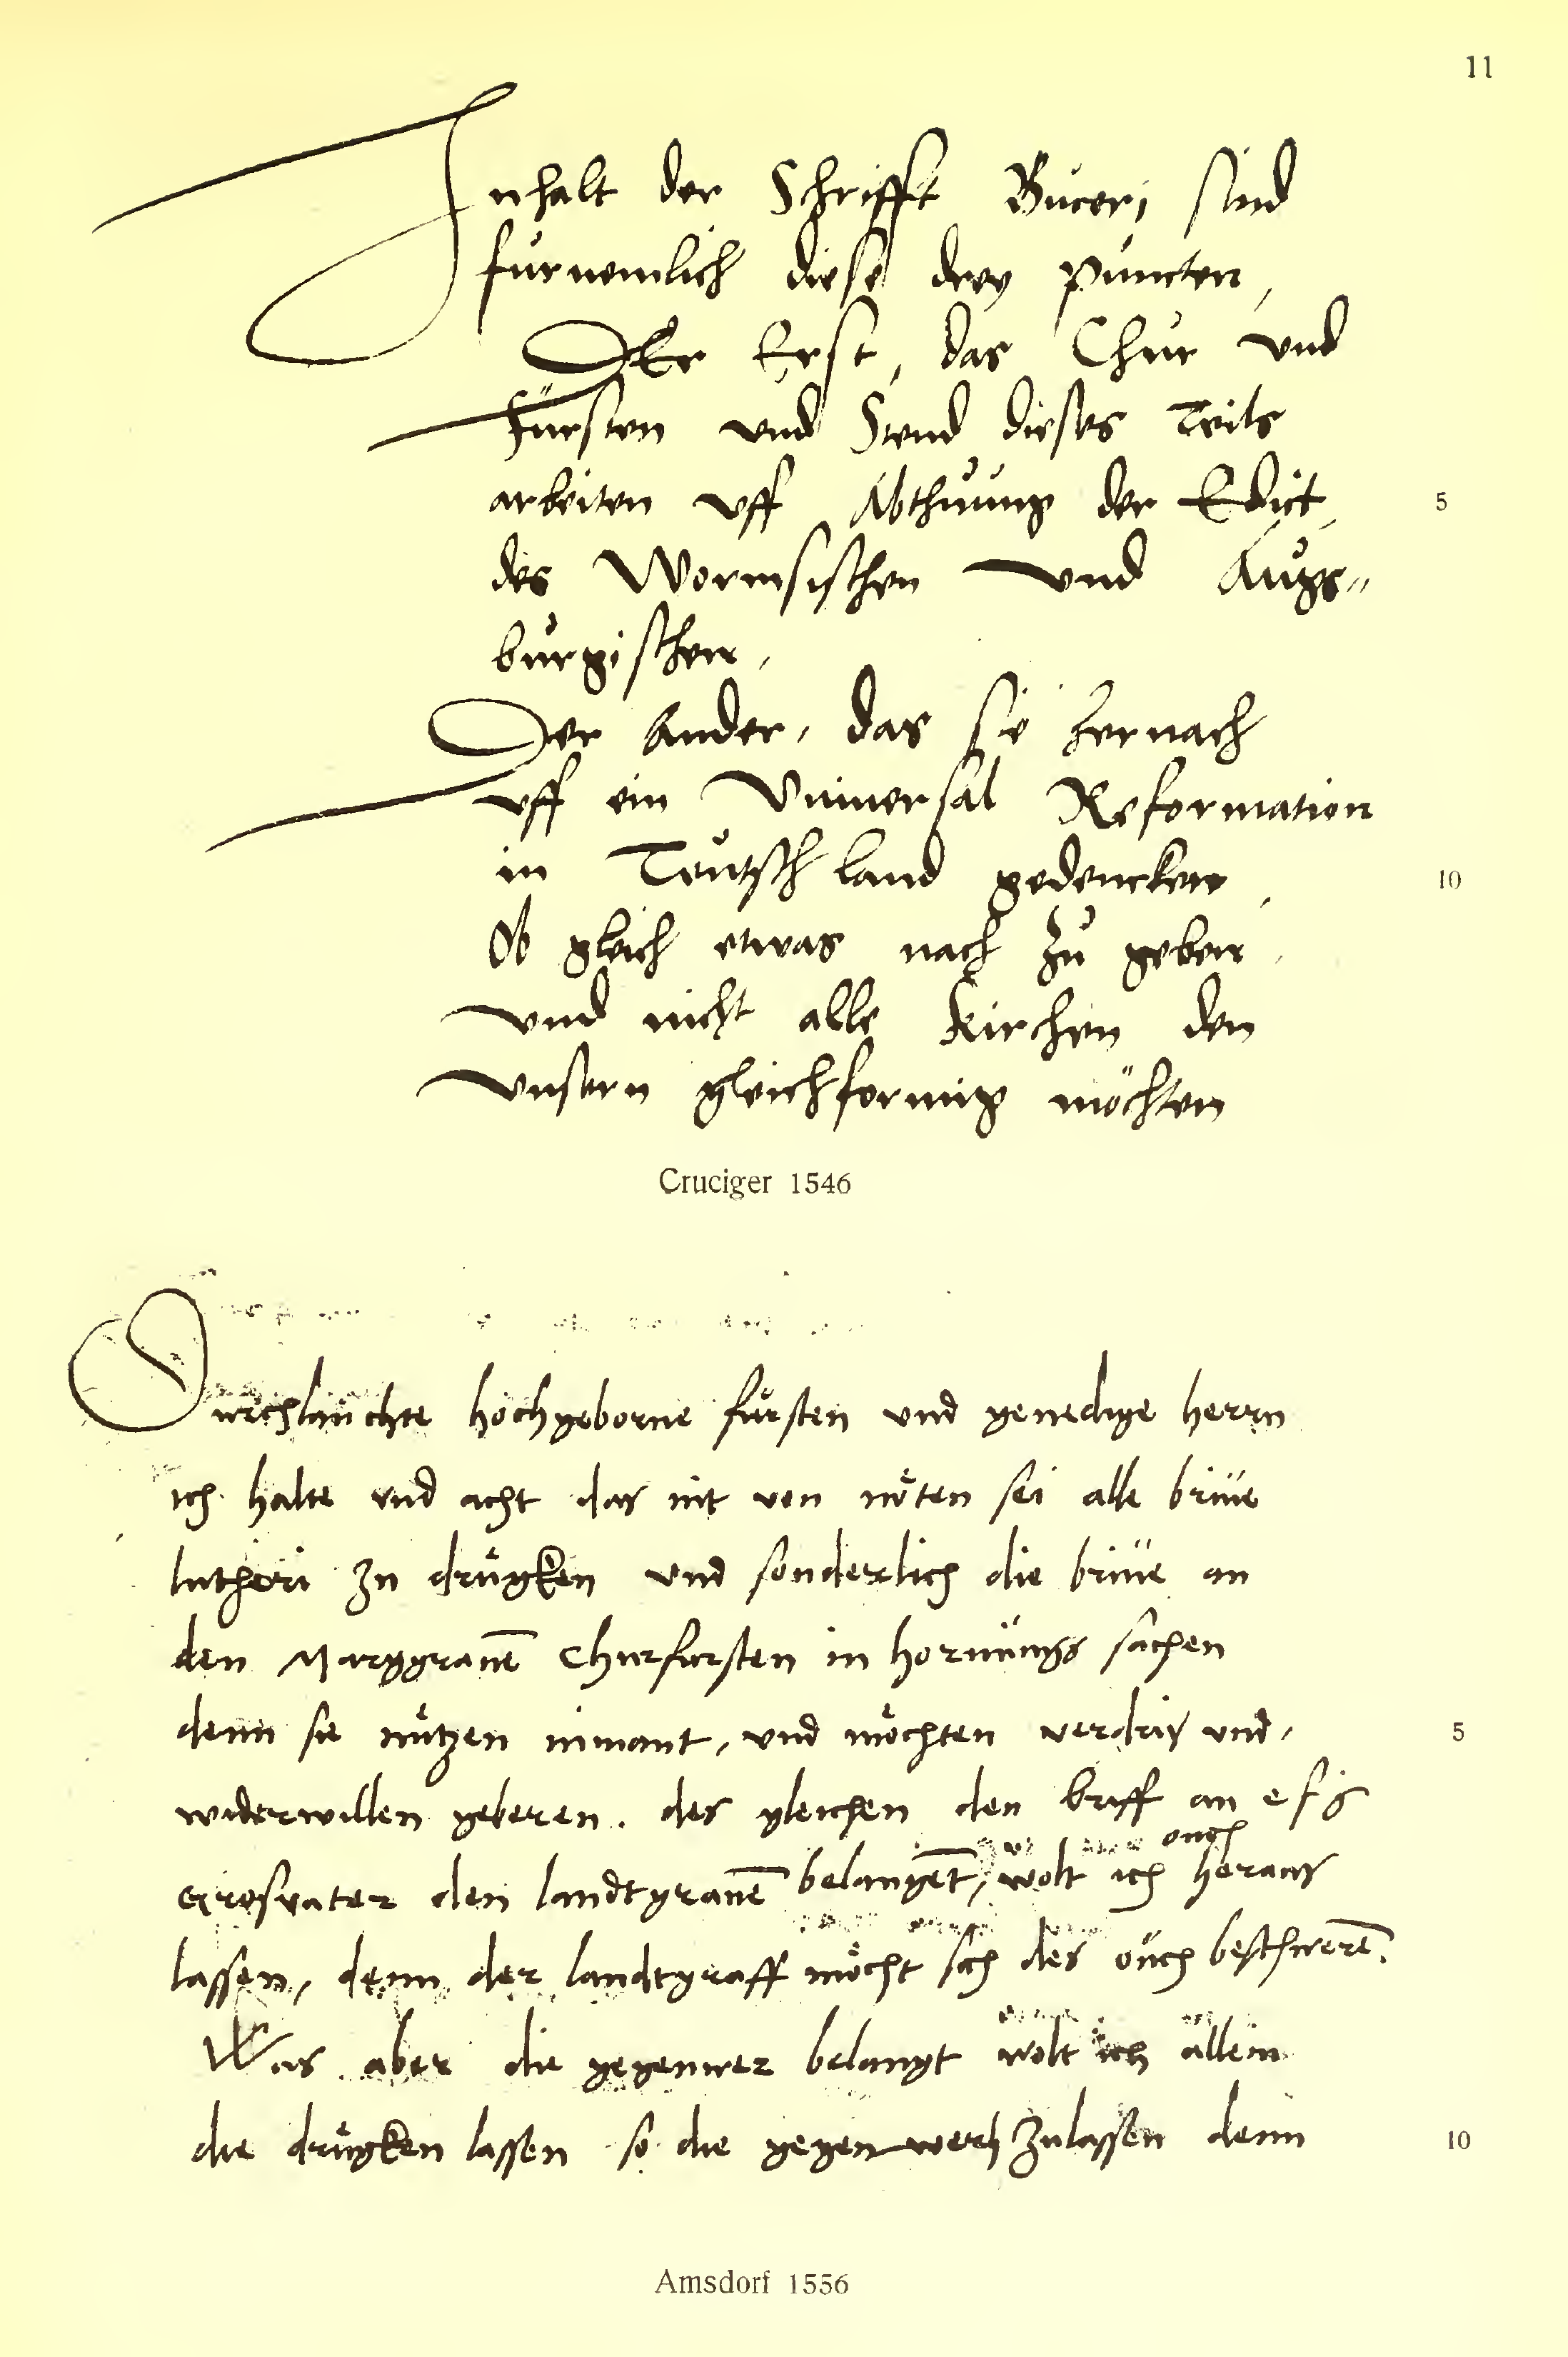 11
Inhalt der Schrifft Buceri sind
furnemlich diese drey puncten,
DEr Erst, das Chur und
Fürsten vnd Stend dieses Teils
arbeiten vff Abthuung der Edict, 5
des Wormsischen vnd Augs-
burgischen,
Der Ander, das sie hernach
vff ein Vniuersal Reformation
in Teutschland gedencken, 10
Ob gleich etwas nach zu geben,
vnd nicht alle Kirchen den
vnsern gleichformig möchten
Cruciger 1546
Durchlauchte hochgeborne fursten vnd genedige herrn
ich halte vnd acht das nit von nöten sei alle briue
lutheri zu drügken vnd sonderlich die briue an
den Marggrauē Churfursten in hornungs sachen
denn sie nützen nimant, vnd möchten verdriß vnd, 5
widerwillen geberen. des gleichen den briff an e f g
ouch
grosvater den landtgrauē belangēt, wolt ich heraus
lassen, denn der landtgraff möcht sich des ouch beschwerē.
Was aber die gegenwer belangt wolt ich allein
die drügken lassen so die gegenwerh zulassen denn 10
Amsdorf 1556